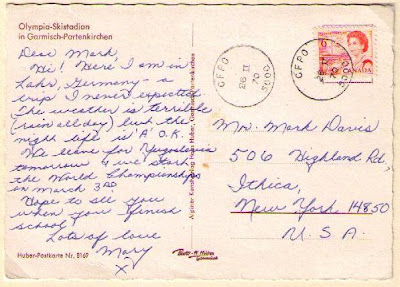 Olympia-Skistadion
in Garmisch-Partenkirchen
Dear Mark,
Hi! Here I am in
Lahr, Germany - a
trip I never expected.
The weather is terrible
(rain all day) but the
night life is A O.K.
We leave for Yugoslavia
tomorrow & we start
the World Championships
on March 3RD.
Hope to see you
when you finish
school!
Lots of love
Mary
X
Huber-Postkarte Nr. 8167
Garmisch-Partenkirchen
CFPO
26 II
70
5000
CFPO
26 II
70
5000
CANADA
Mr. Mark Davis
506 Highland Rd,
Ithica,
New York 14850
U.S.A.